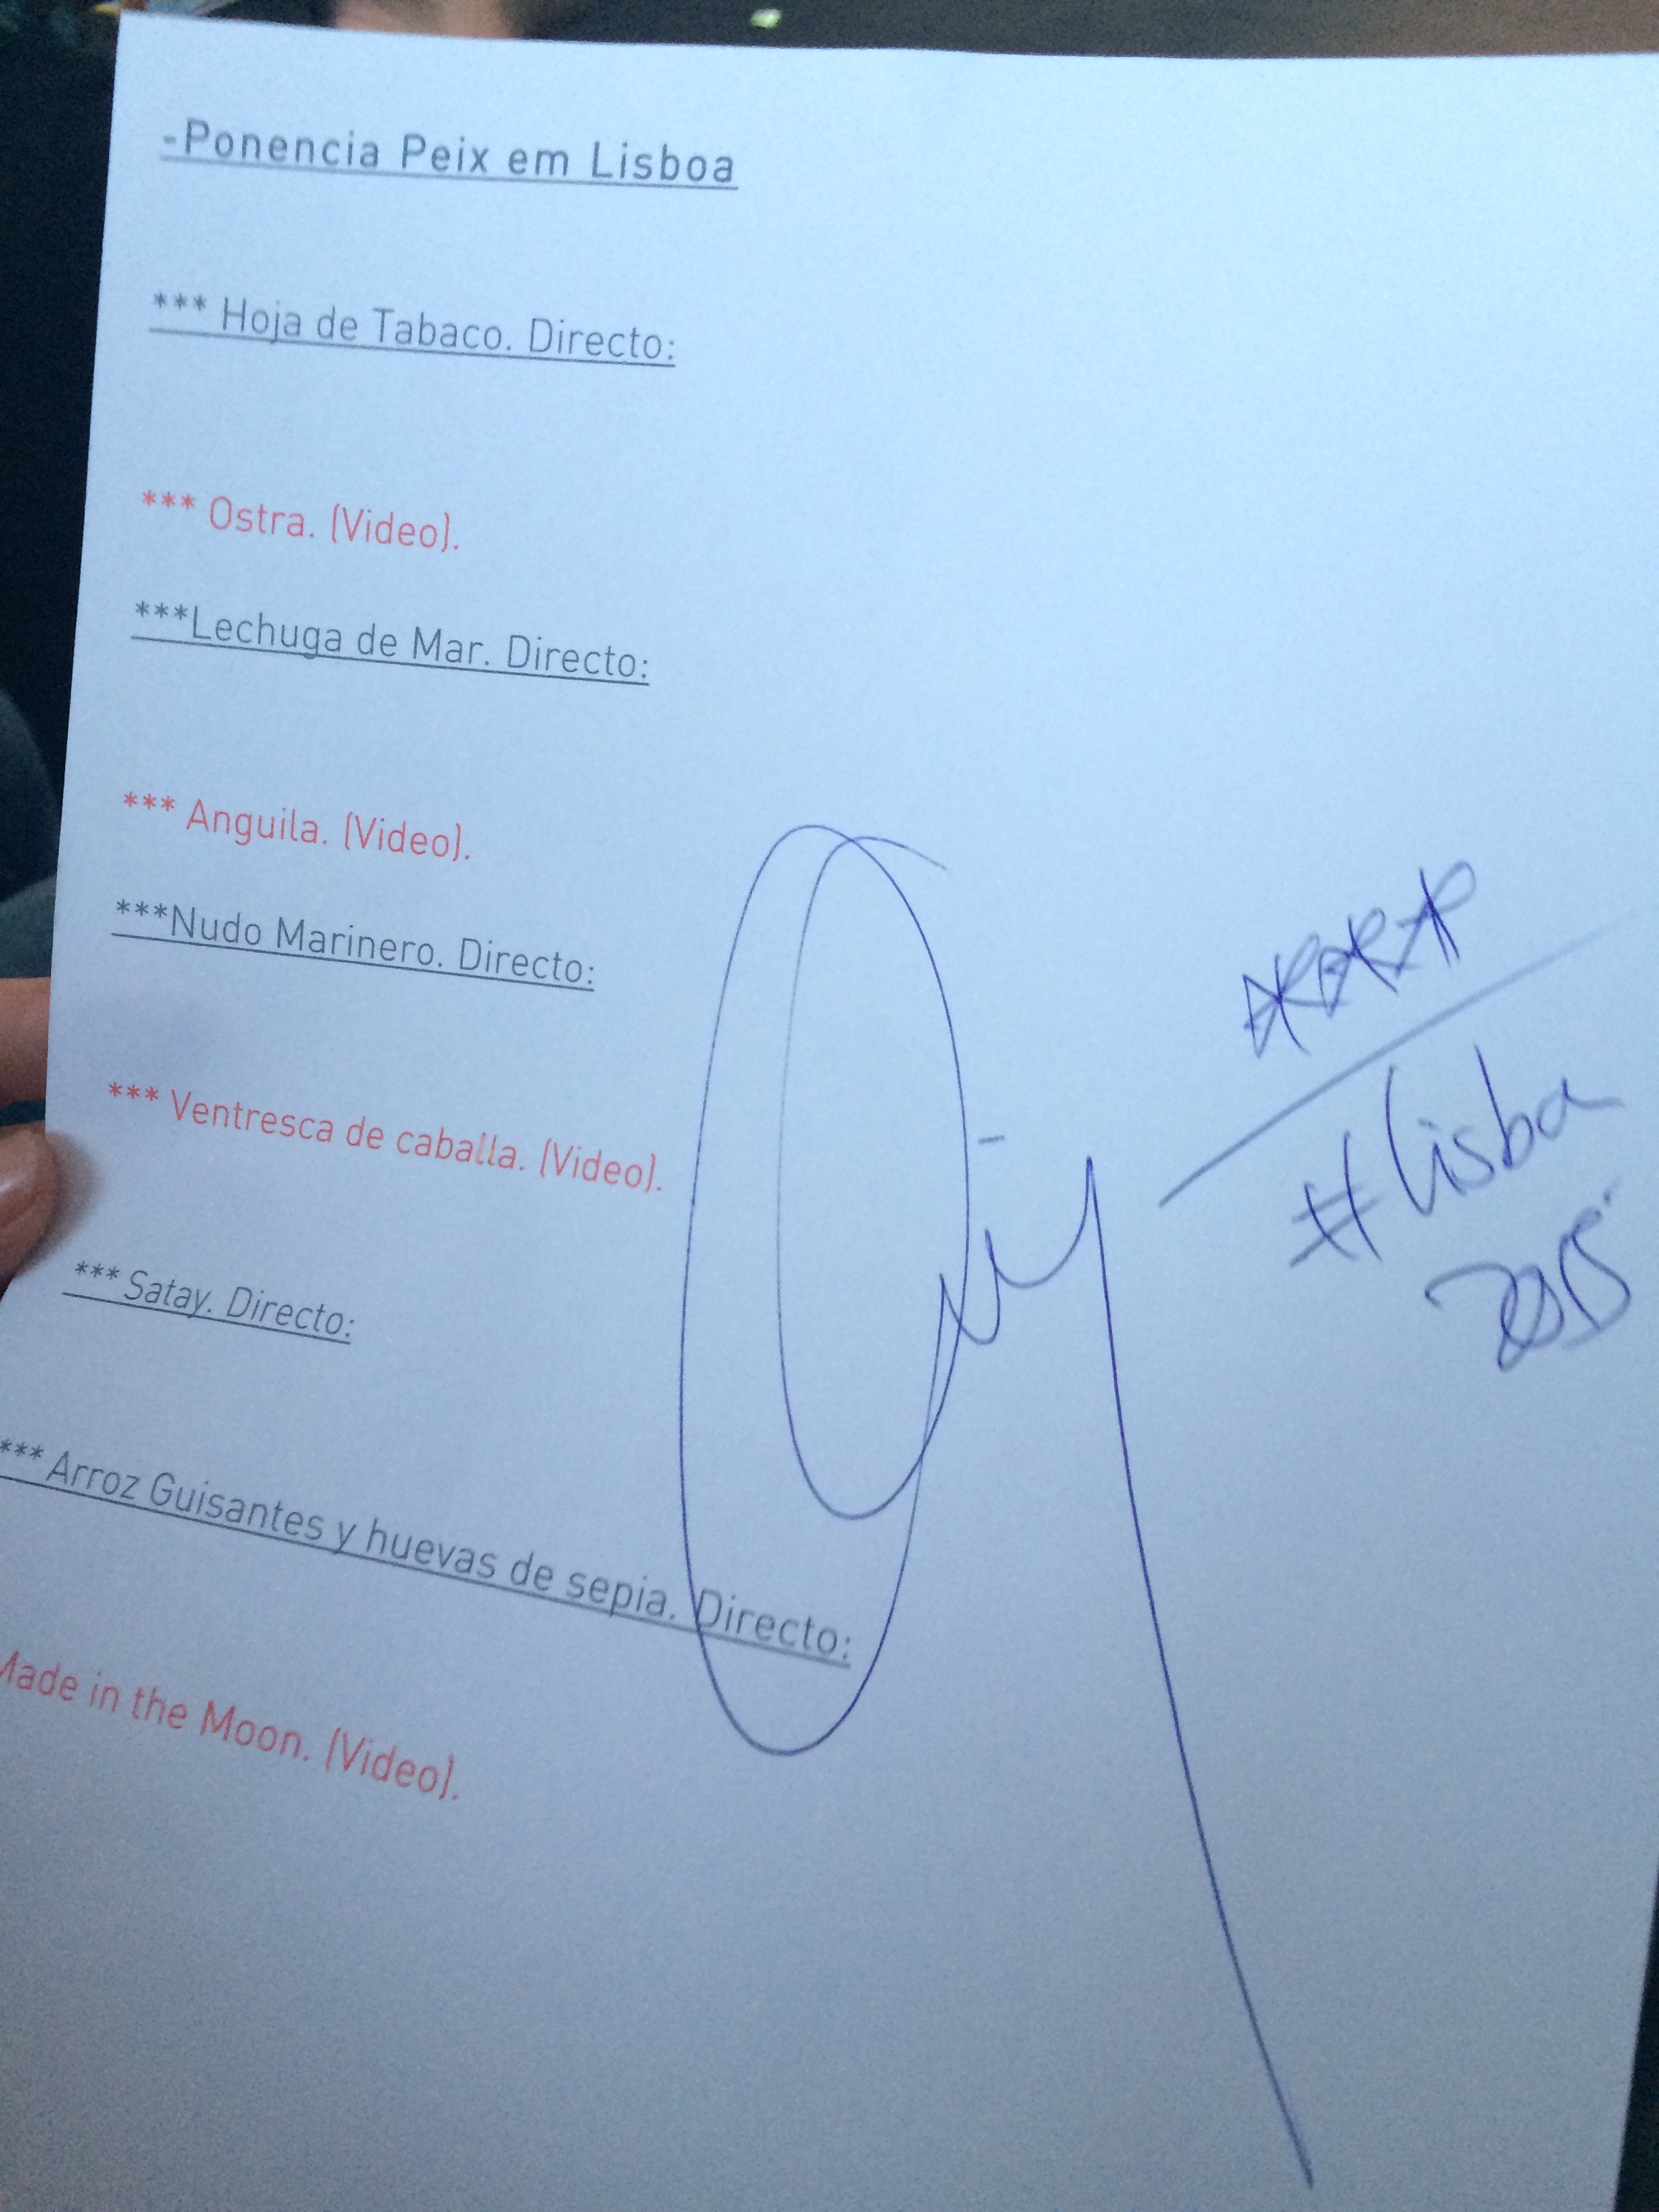 -Ponencia Peix em Lisboa
*** Hoja de Tabaco. Directo:
*** Ostra. (Video).
***Lechuga de Mar. Directo:
*** Anguila. (Video).
***Nudo Marinero. Directo:
*** Ventresca de caballa. (Video).
*** Satay. Directo:
*** Arroz Guisantes y huevas de sepia. Directo:
Made in the Moon. (Video).
#Lisboa
2015